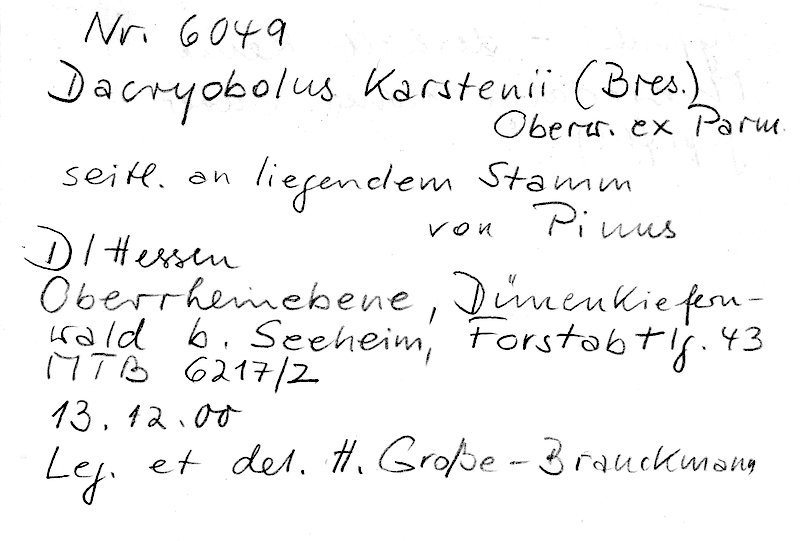 Nr. 6049
Dacryobolus Karstenii (Bres.)
Oberw. ex Parm.
seitl. an liegendem Stamm
von Pinus
D/Hessen
Oberrheinebene, Dünenkiefern-
wald b. Seeheim, Forstabtlg. 43
MTB 6217/2
13.12.00
Leg. et det. H. Große-Brauckmann